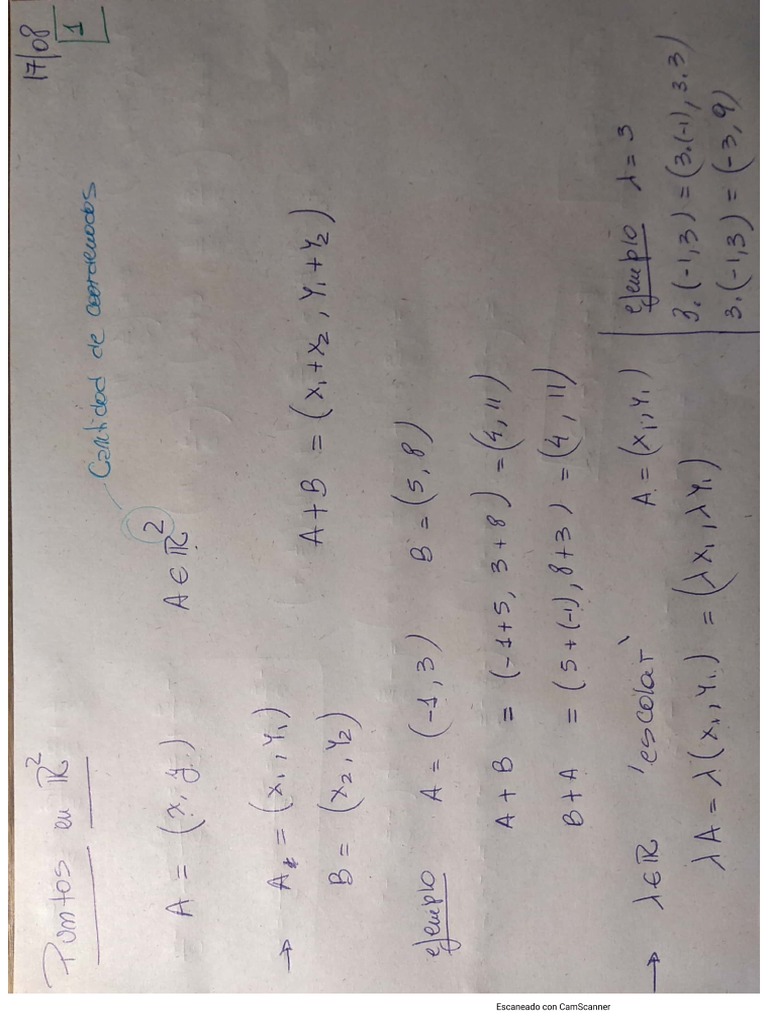 17/08
1
Puntos en ℝ²
Cantidad de coordenadas
A = (x, y)    A ∈ ℝ²
→ A = (x₁, y₁)
B = (x₂, y₂)    A + B = (x₁ + x₂, y₁ + y₂)
ejemplo    A = (-1, 3)    B = (5, 8)
A + B = (-1+5, 3+8) = (4, 11)
B + A = (5+(-1), 8+3) = (4, 11)
→ λ ∈ ℝ    'escalar'    A = (x₁, y₁)
λA = λ(x₁, y₁) = (λx₁, λy₁)
ejemplo    λ = 3
3.(-1,3) = (3.(-1), 3.3)
3.(-1,3) = (-3, 9)
Escaneado con CamScanner